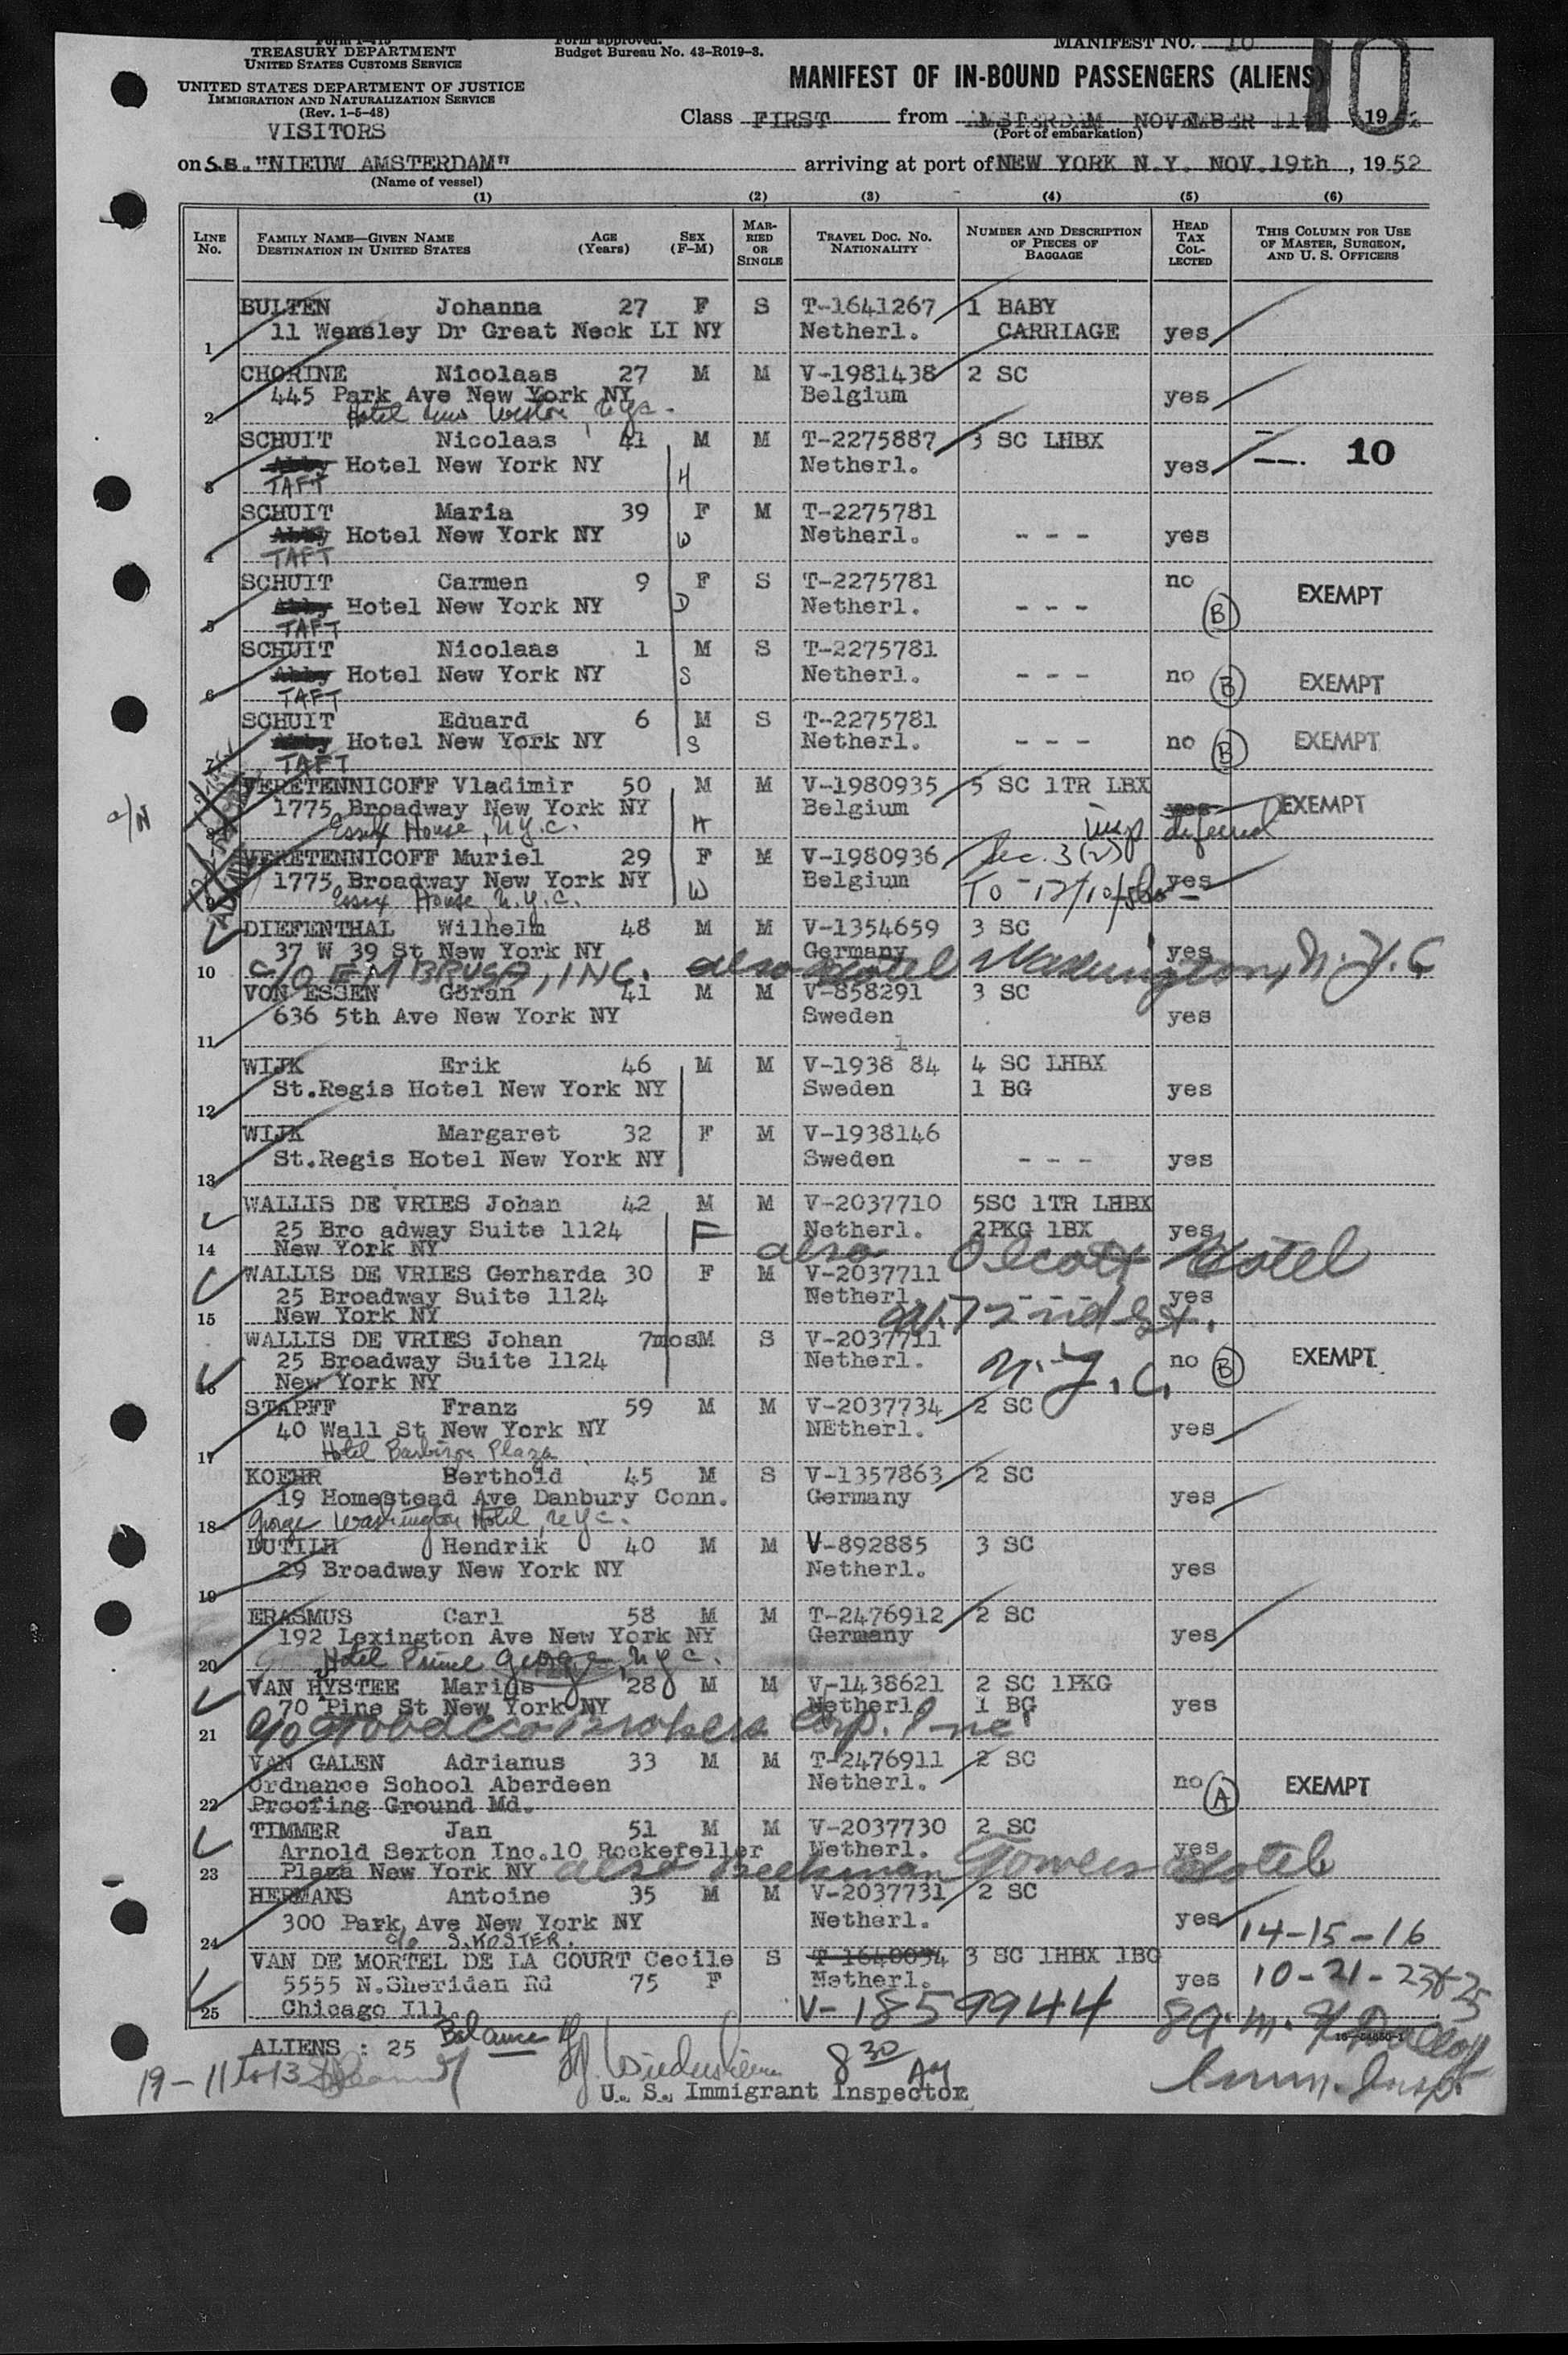 Form I-415
TREASURY DEPARTMENT
UNITED STATES CUSTOMS SERVICE
Form approved.
Budget Bureau No. 43-R019-3.
MANIFEST NO. 10
10
UNITED STATES DEPARTMENT OF JUSTICE
IMMIGRATION AND NATURALIZATION SERVICE
(Rev. 1-5-48)
VISITORS
MANIFEST OF IN-BOUND PASSENGERS (ALIENS)
Class FIRST from AMSTERDAM NOVEMBER 11th, 1952
(Port of embarkation)
on S.S. "NIEUW AMSTERDAM" arriving at port of NEW YORK N.Y. NOV.19th, 1952
(Name of vessel)
(1) (2) (3) (4) (5) (6)
LINE No. FAMILY NAME—GIVEN NAME DESTINATION IN UNITED STATES AGE (Years) SEX (F-M) MARRIED OR SINGLE TRAVEL DOC. NO. NATIONALITY NUMBER AND DESCRIPTION OF PIECES OF BAGGAGE HEAD TAX COLLECTED THIS COLUMN FOR USE OF MASTER, SURGEON, AND U. S. OFFICERS
BULTEN Johanna 27 F S T-1641267 1 BABY
11 Wensley Dr Great Neck LI NY Netherl. CARRIAGE yes
1
CHORINE Nicolaas 27 M M V-1981438 2 SC
445 Park Ave New York NY Belgium yes
2 Hotel
SCHUIT Nicolaas 41 M M T-2275887 3 SC LHBX
Abby Hotel New York NY Netherl. yes 10
3 TAFT H
SCHUIT Maria 39 F M T-2275781
Abby Hotel New York NY W Netherl. - - - yes
4 TAFT
SCHUIT Carmen 9 F S T-2275781 no EXEMPT
Abby Hotel New York NY D Netherl. - - - B
5 TAFT
SCHUIT Nicolaas 1 M S T-2275781
Abby Hotel New York NY S Netherl. - - - no B EXEMPT
6 TAFT
SCHUIT Eduard 6 M S T-2275781
Abby Hotel New York NY S Netherl. - - - no B EXEMPT
7 TAFT
VERETENNICOFF Vladimir 50 M M V-1980935 5 SC 1TR LBX
1775 Broadway New York NY Belgium yes EXEMPT
8 Essex House, N.Y.C. H insp deferred
VERETENNICOFF Muriel 29 F M V-1980936 Sec. 3(2)
1775 Broadway New York NY W Belgium yes
9 Essex House, N.Y.C. To 12/10/
DIEFENTHAL Wilhelm 48 M M V-1354659 3 SC
37 W 39 St New York NY Germany yes
10 c/o EMBRUSA, INC. also Hotel Washington, N.Y.C
VON ESSEN Göran 41 M M V-858291 3 SC
636 5th Ave New York NY Sweden yes
11
1
WIJK Erik 46 M M V-1938 84 4 SC LHBX
St.Regis Hotel New York NY Sweden 1 BG yes
12
WIJK Margaret 32 F M V-1938146
St.Regis Hotel New York NY Sweden - - - yes
13
WALLIS DE VRIES Johan 42 M M V-2037710 5SC 1TR LHBX
25 Bro adway Suite 1124 F Netherl. 2PKG 1BX yes
14 New York NY also Olcott Hotel
WALLIS DE VRIES Gerharda 30 F M V-2037711
25 Broadway Suite 1124 Netherl. - - - yes
15 New York NY W. 72nd St.
WALLIS DE VRIES Johan 7mosM S V-2037711
25 Broadway Suite 1124 Netherl. no B EXEMPT
16 New York NY N.Y.C.
STAPFF Franz 59 M M V-2037734 2 SC
40 Wall St New York NY NEtherl. yes
17 Hotel Barbizon Plaza
KOEHR Berthold 45 M S V-1357863 2 SC
19 Homestead Ave Danbury Conn. Germany yes
18 George Washington Hotel, N.Y.C.
DUTILH Hendrik 40 M M V-892885 3 SC
29 Broadway New York NY Netherl. yes
19
ERASMUS Carl 58 M M T-2476912 2 SC
192 Lexington Ave New York NY Germany yes
20 Hotel Prince George, N.Y.C.
VAN HYSTEE Marius 28 M M V-1438621 2 SC 1PKG
70 Pine St New York NY Netherl 1 BG yes
21 c/o Tobacco Brokers Corp. Inc
VAN GALEN Adrianus 33 M M T-2476911 2 SC
Ordnance School Aberdeen Netherl. no A EXEMPT
22 Proofing Ground Md.
TIMMER Jan 51 M M V-2037730 2 SC
Arnold Sexton Inc.10 Rockefeller Netherl. yes
23 Plaza New York NY also Beekman Towers Hotel
HERMANS Antoine 35 M M V-2037731 2 SC
300 Park Ave New York NY Netherl. yes
24 c/o S.KOSTER. 14-15-16
VAN DE MORTEL DE LA COURT Cecile S T-1640034 3 SC 1HBX 1BG
5555 N.Sheridan Rd 75 F Netherl. yes 10-21-23&25
25 Chicago Ill. V-1859944
ALIENS : 25 Balance 8 a.m.
16—54650-1
19-11 to 13 8 30 AM
U. S. Immigrant Inspector Imm. Insp.